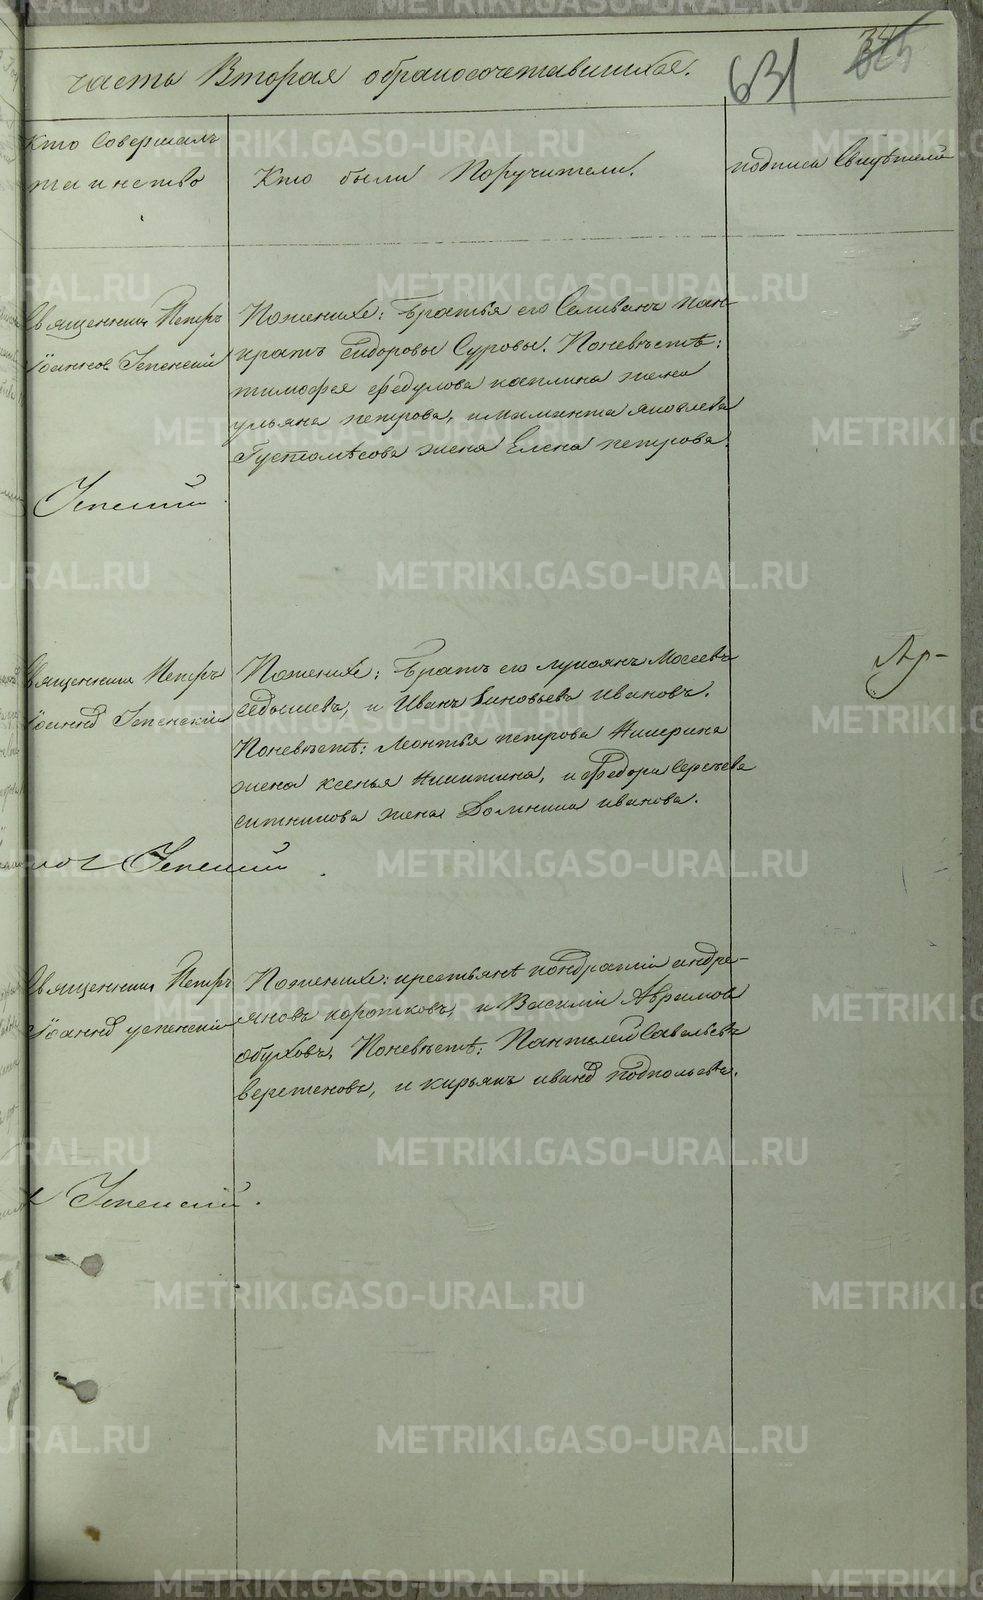 часть Вторая обракосочетавшихся.
631
Кто Совершалъ
таинство
Кто были Поручители.
подписи Свидѣтелей
Священникъ Петръ
Іоанновъ Успенскій
Поженихе: Братья его Селиванъ Пан-
кратъ Сидоровы Суровы. Поневѣстѣ:
тимофея федулова каплина жена
ульяна петрова, климента яковлева
Густомѣсова жена Елена петрова.
Успенскій
Священникъ Петръ
Іоанновъ Успенскій
Поженихе: Братъ его лукоянъ Мосеевъ
Седышевъ, и Иванъ Зиновьевъ Ивановъ.
Поневѣстѣ: Леонтья петрова
жена ксенья Никитина, и Федора Сергѣева
ситникова жена Домника иванова.
Успенскій
Священникъ Петръ
Іоанновъ успенскій
Поженихе: крестьяне кондратій андре-
яновъ коротковъ, и Василій Абрамовъ
обуховъ. Поневѣстѣ: Пантелей Савельевъ
веретеновъ, и кирьянъ ивановъ подкользевъ.
Успенскій.
METRIKI.GASO-URAL.RU